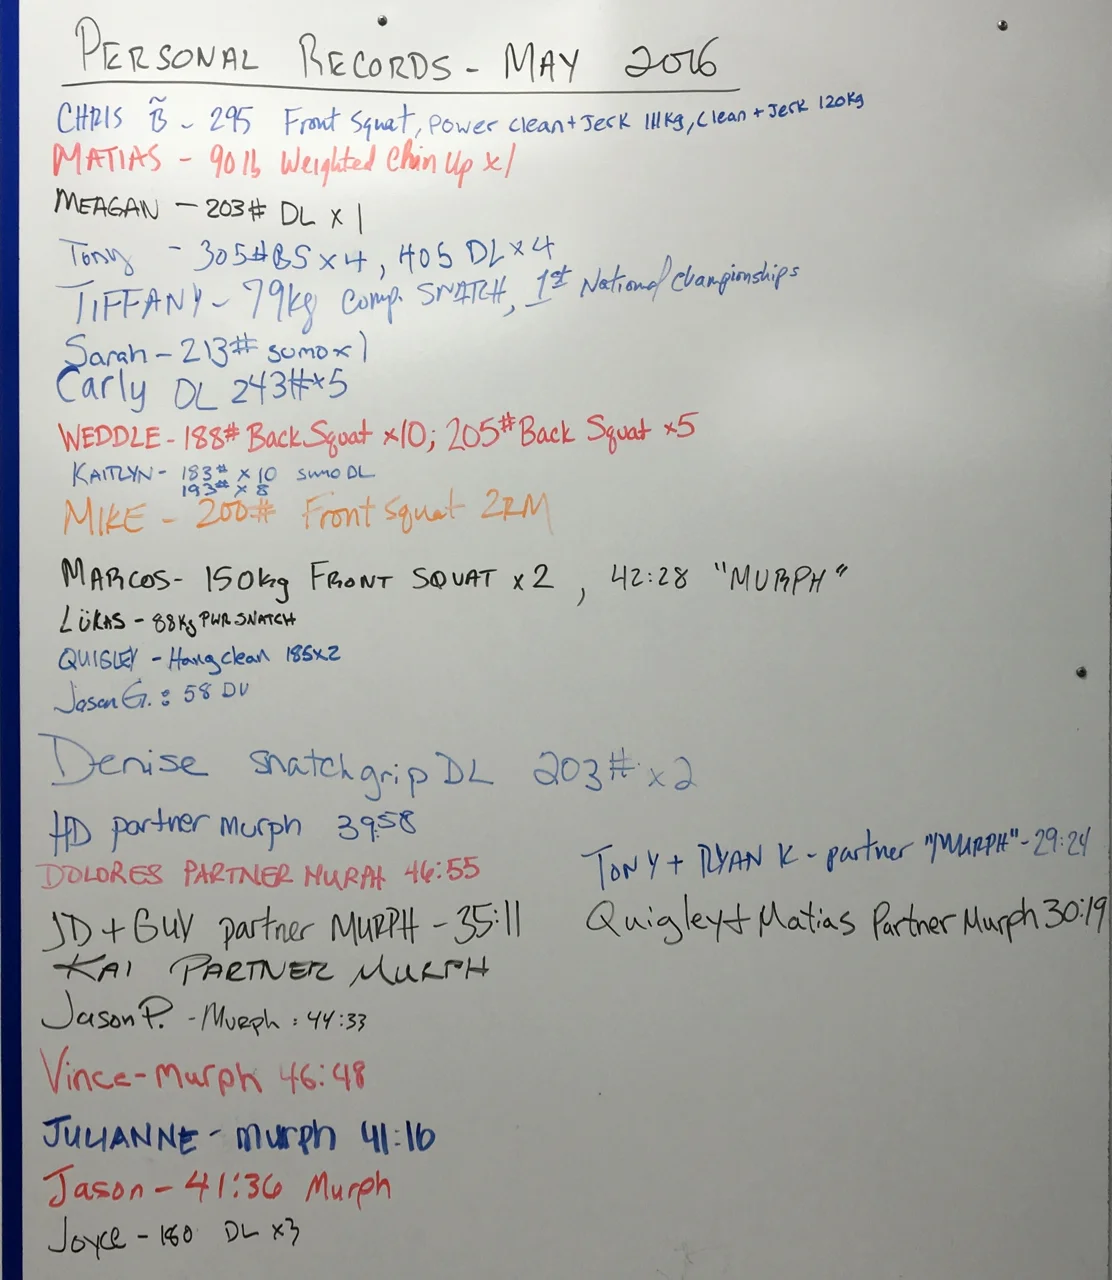 PERSONAL RECORDS - MAY 2016
CHRIS B̃ - 295 Front Squat, Power Clean + Jerk 111kg, Clean + Jerk 120kg
MATIAS - 90 lb Weighted Chin Up x 1
MEAGAN - 203# DL x 1
Tony - 305# BS x 4, 405 DL x 4
TIFFANY - 79kg Comp. SNATCH, 1st National Championships
Sarah - 213# sumo x 1
Carly DL 243# x 5
WEDDLE - 188# Back Squat x10; 205# Back Squat x5
KAITLYN - 183# x 10 sumo DL
193# x 8
MIKE - 200# Front Squat 2RM
MARCOS - 150kg FRONT SQUAT x 2, 42:28 "MURPH"
LÜKAS - 88Kg PWR SNATCH
QUIGLEY - Hang clean 185x2
Jason G. : 58 DU
Denise snatch grip DL 203# x 2
HD partner Murph 39:58
DOLORES PARTNER MURPH 46:55
TONY + RYAN K - partner "MURPH" - 29:24
JD + GUY partner MURPH - 35:11
Quigley + Matias Partner Murph 30:19
KAI PARTNER MURPH
Jason P. - Murph : 44:33
Vince - Murph 46:48
JULIANNE - murph 41:16
Jason - 41:36 Murph
Joyce - 180 DL x3